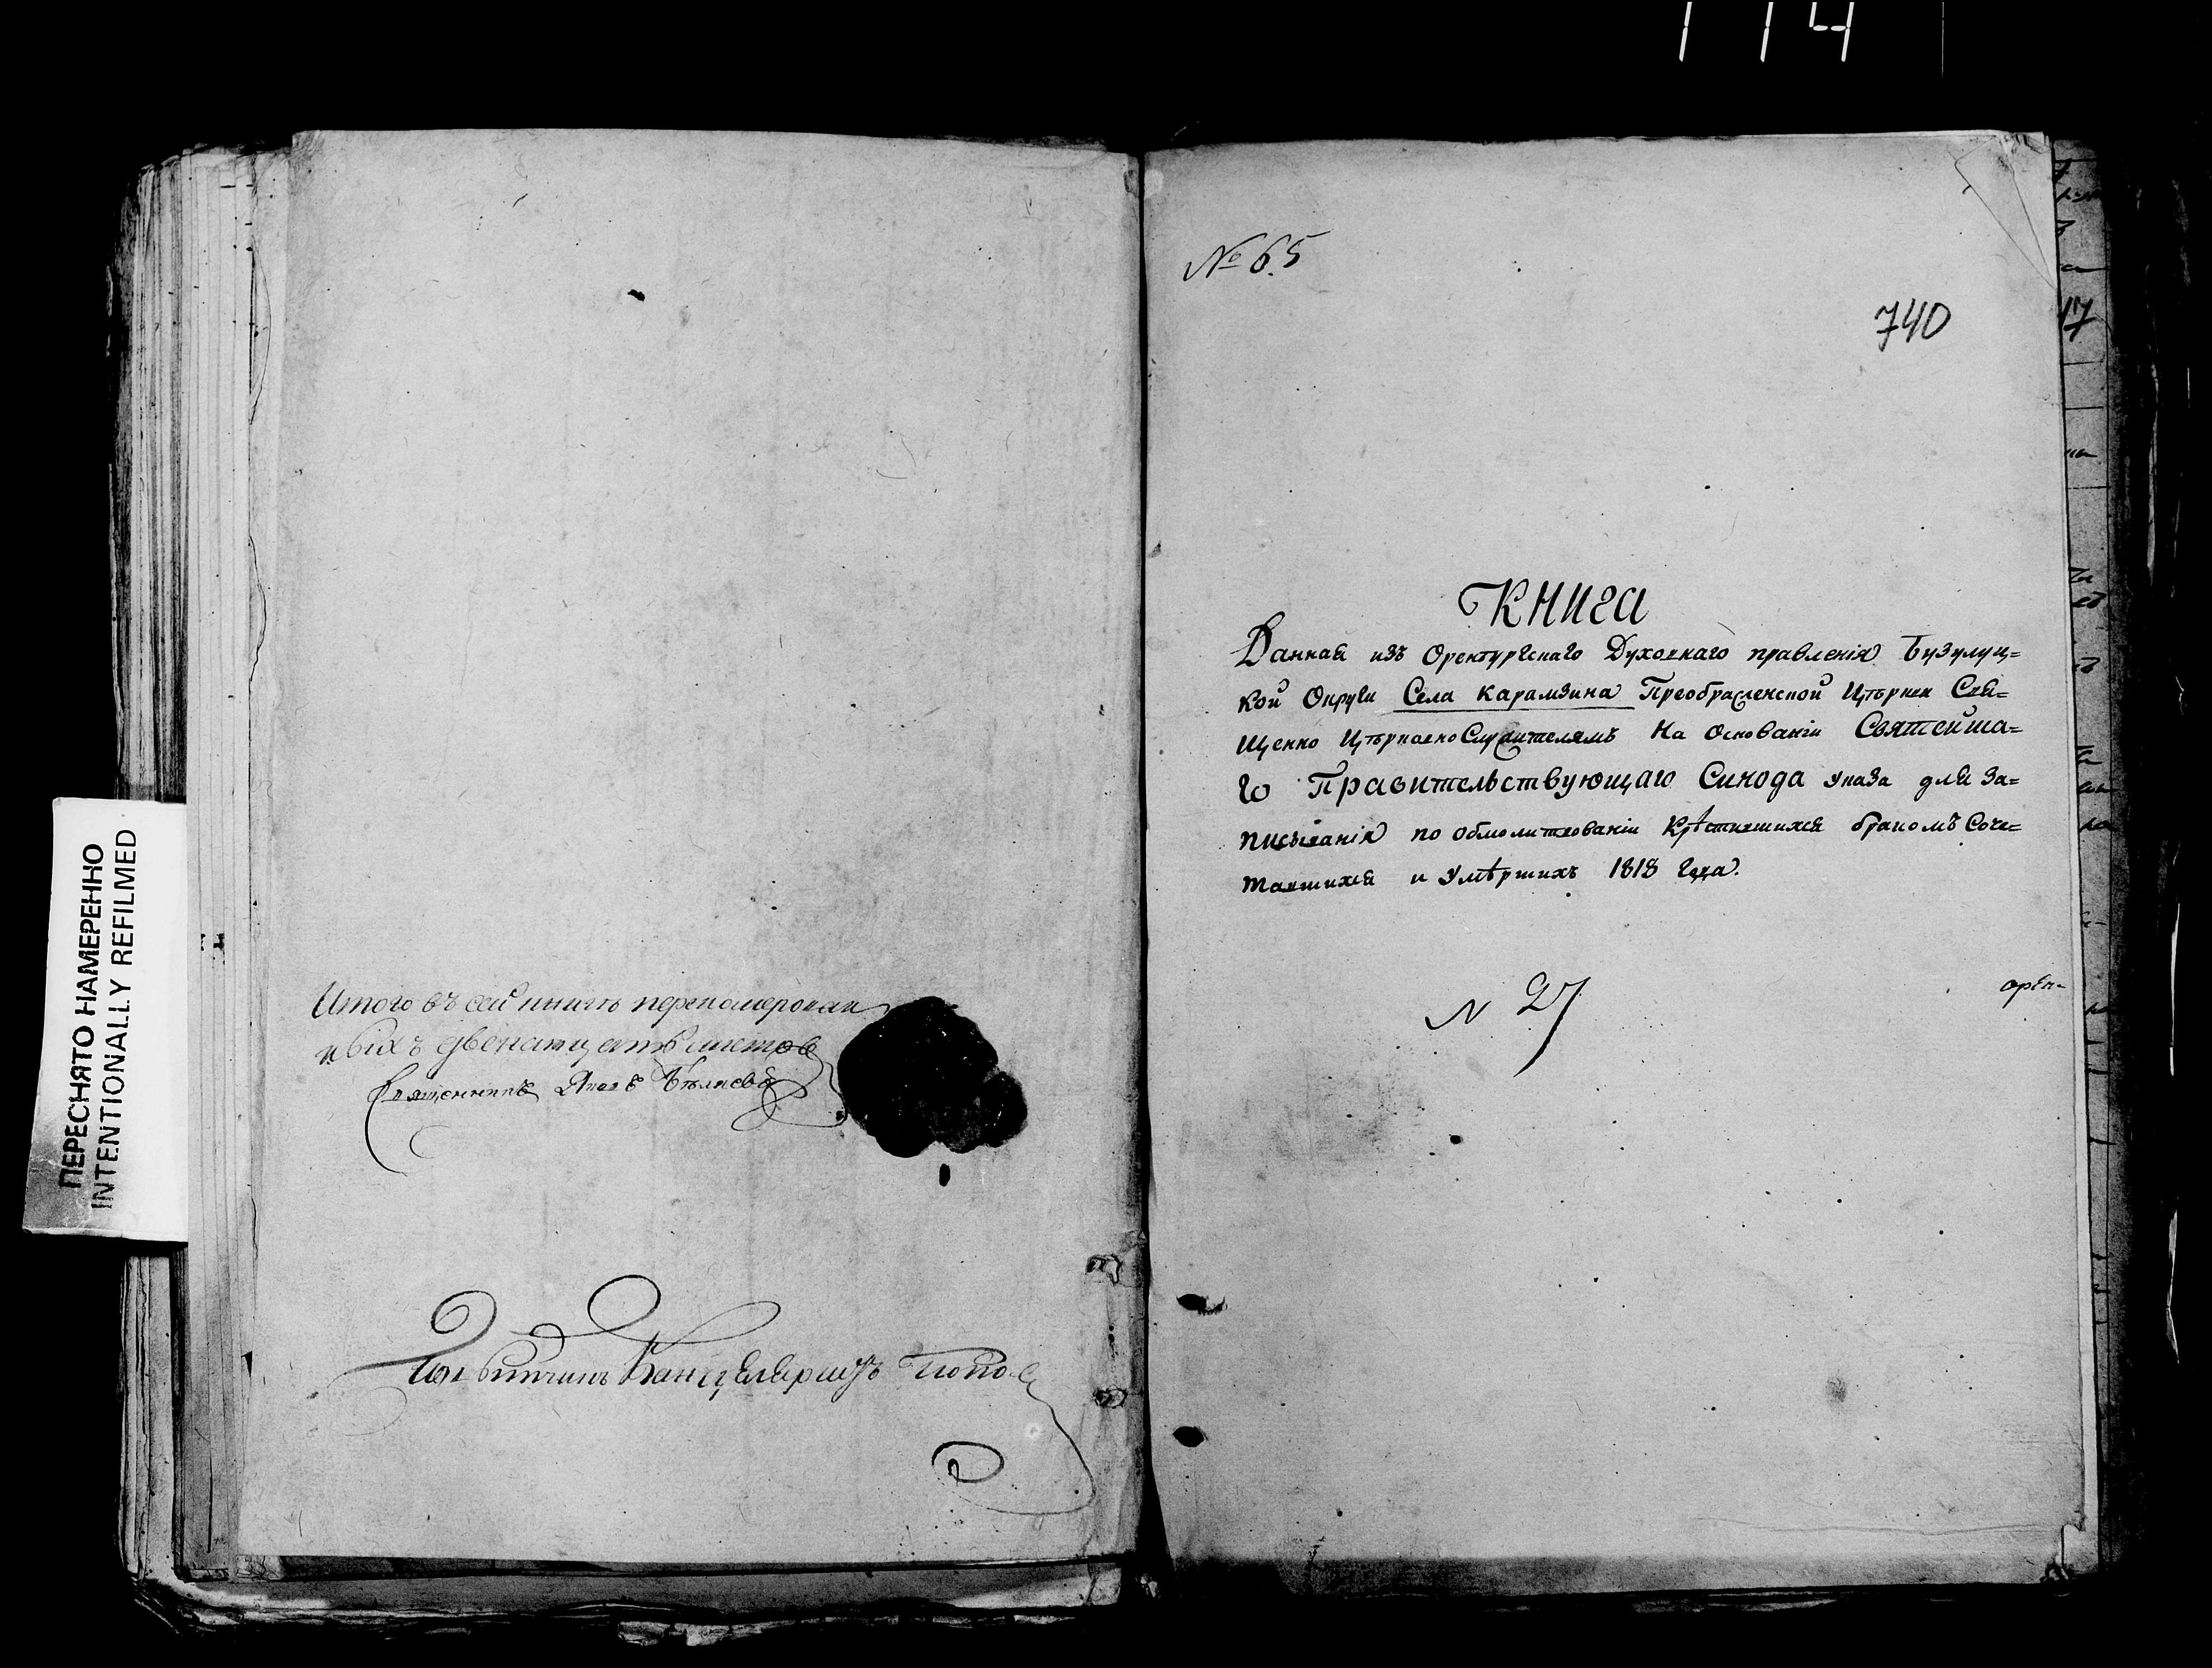 114
ПЕРЕСНЯТО НАМЕРЕННО
INTENTIONALLY REFILMED
Итого въ сей книгѣ перенумерован
ныхъ двенатцать листов
Священникъ Яковъ Бѣляевъ
Канцеляристъ Попов
№ 65
740
17
Книга
Данная изъ Оренбургскаго Духовнаго правленія Бузулуц=
кой Округи Села Карамзина Преображенской Цѣркви Свя=
щенно Цѣрковно Служителямъ На Основаніи Святейша=
го Правительствующаго Синода Указа для За=
писыванія по обмолитвованіи Крѣстившихся бракомъ Соче=
тавшихся и Умѣршихъ 1818 Года.
N 27
орен-